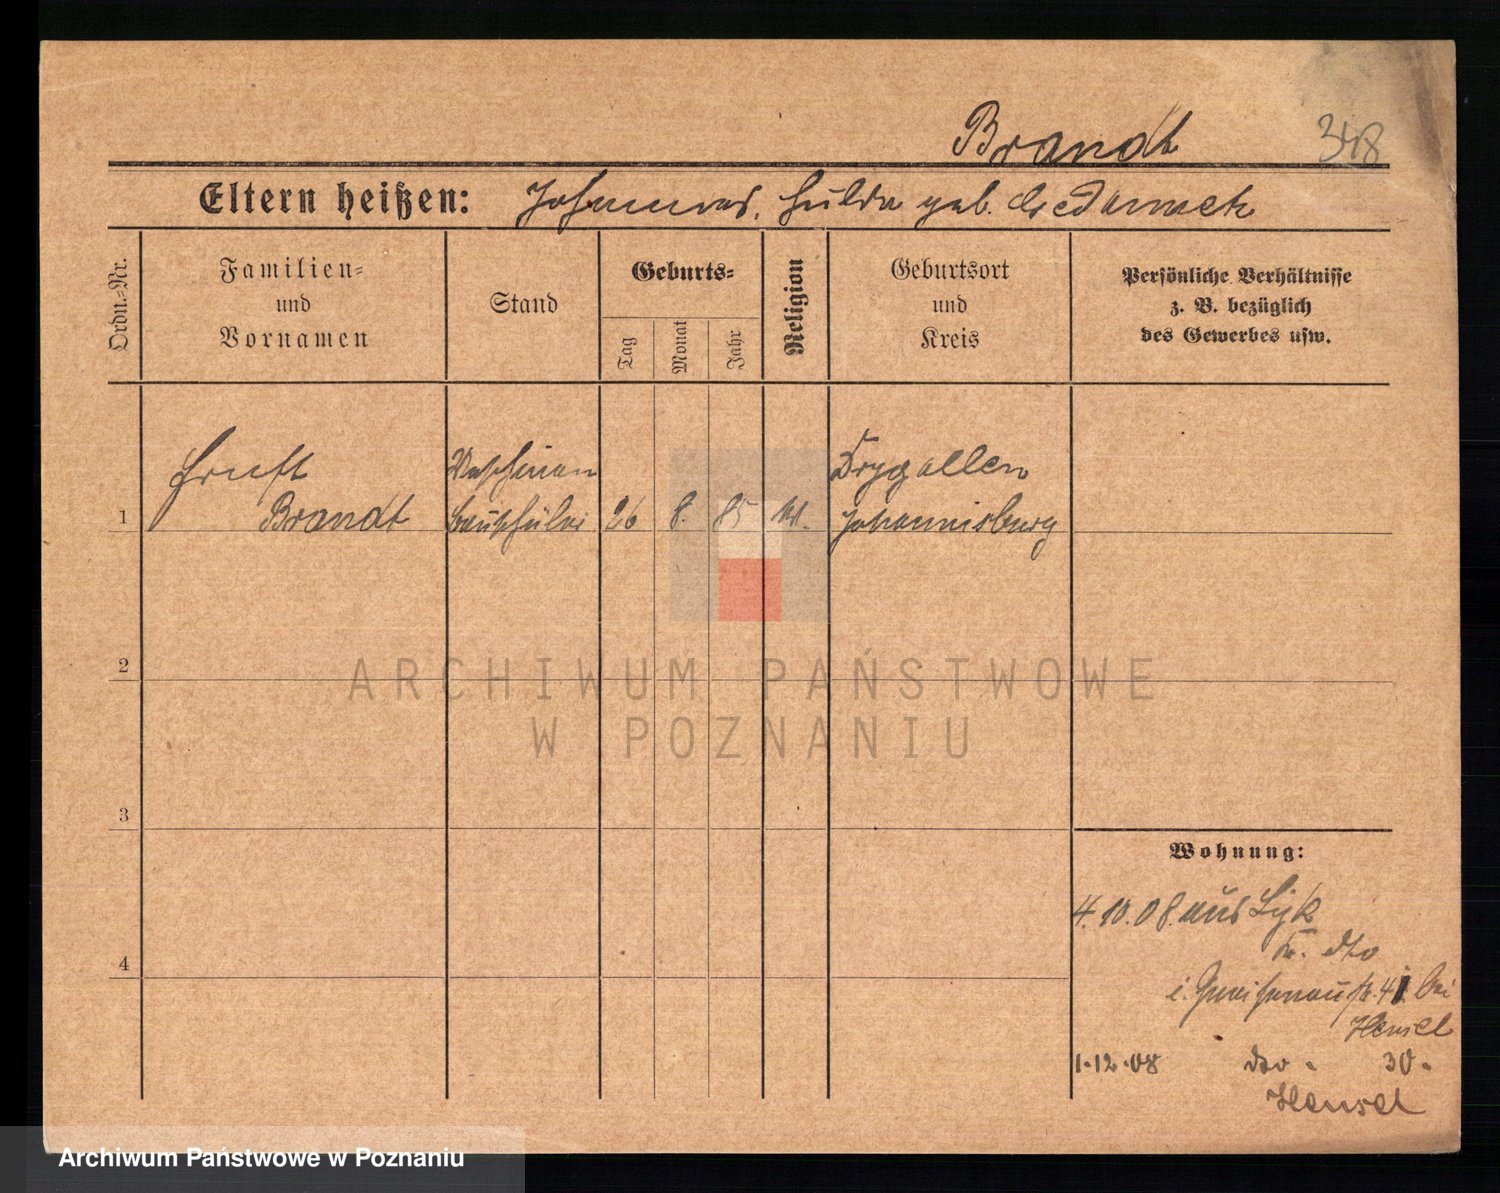 Brandt
348
Eltern heißen: Johannes, Hulda geb.
Ordn.=Nr.
Familien=
und
Vornamen
Stand
Geburts=
Tag
Monat
Jahr
Religion
Geburtsort
und
Kreis
Persönliche Verhältnisse
z. B. bezüglich
des Gewerbes usw.
Ernst Maschinen Drygallen
1 Brandt bauschüler 26 8. 85 Johannisburg
2
3
4
Wohnung:
4.10.08. aus Lyk
Kr. dto
i. Gneisenaustr. 41. bei
Hensel
1.12.08 dto. 30.
Hensel
ARCHIWUM PAŃSTWOWE
W POZNANIU
Archiwum Państwowe w Poznaniu